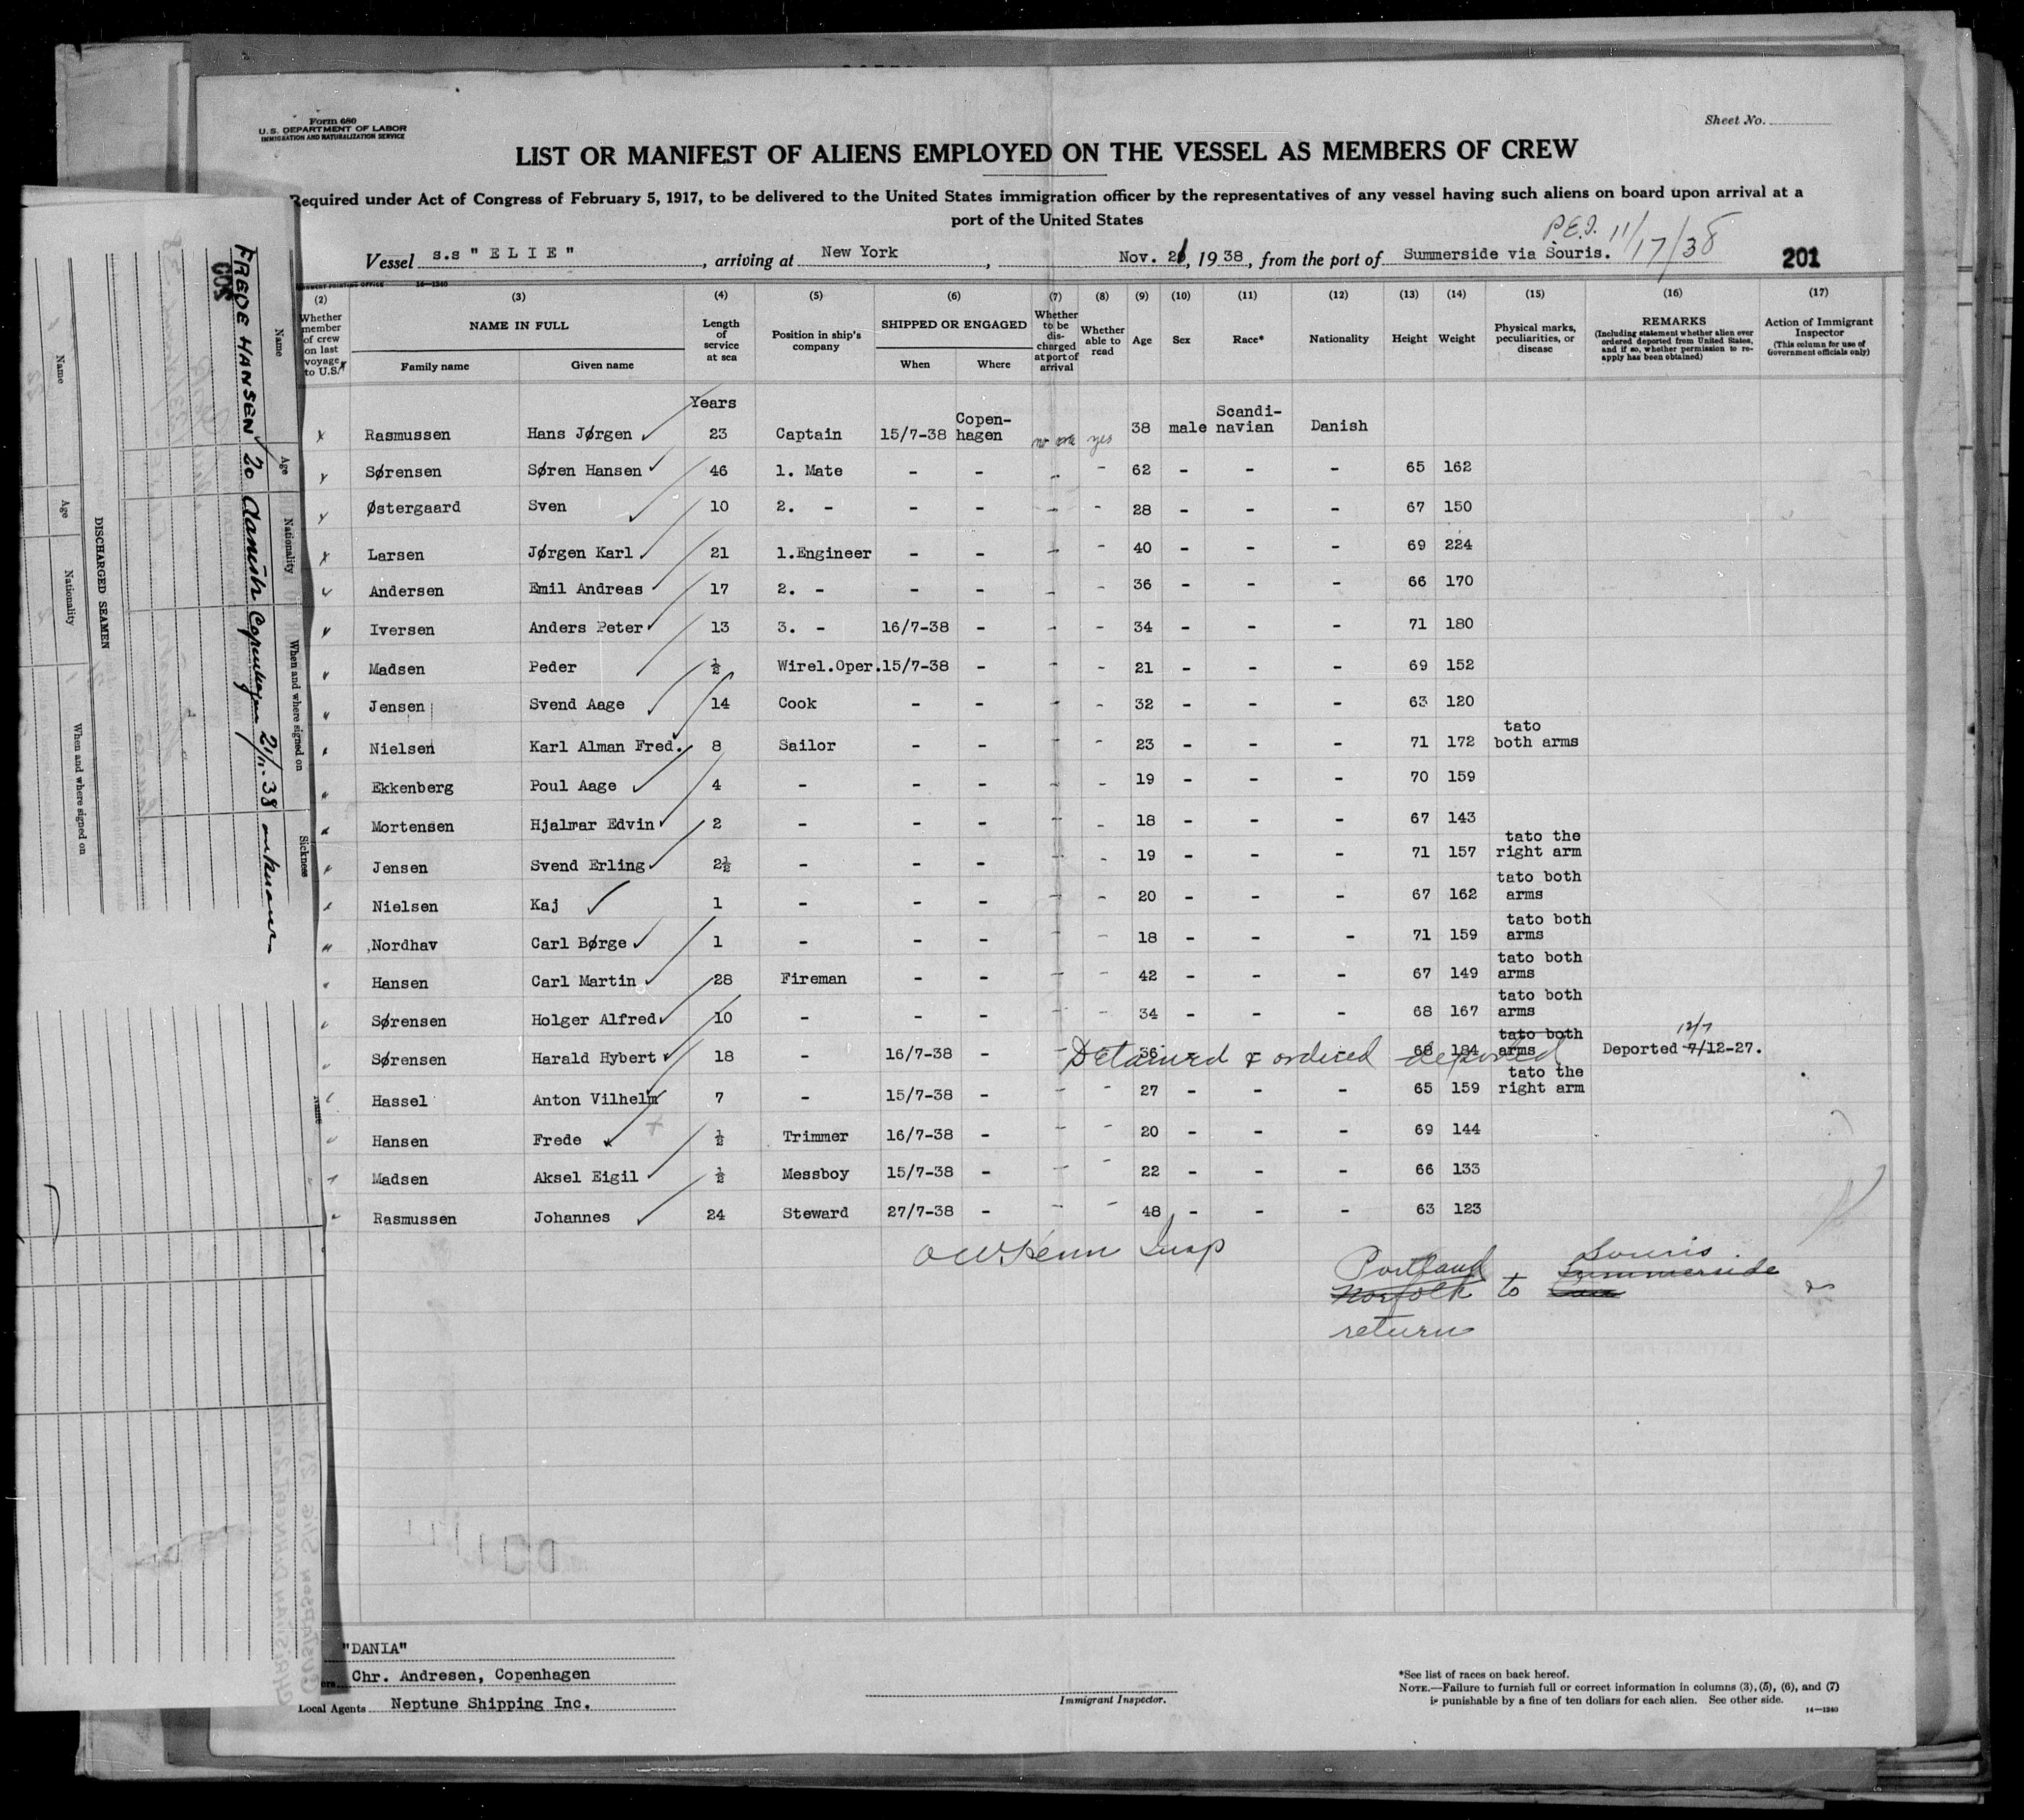 Form 680
U. S. DEPARTMENT OF LABOR
IMMIGRATION AND NATURALIZATION SERVICE
Sheet No.
LIST OR MANIFEST OF ALIENS EMPLOYED ON THE VESSEL AS MEMBERS OF CREW
Required under Act of Congress of February 5, 1917, to be delivered to the United States immigration officer by the representatives of any vessel having such aliens on board upon arrival at a
port of the United States
P.E.I. 11/17/38
Vessel s.s " E L I E ", arriving at New York, Nov. 21, 1938, from the port of Summerside via Souris.
201
(2) (3) (4) (5) (6) (7) (8) (9) (10) (11) (12) (13) (14) (15) (16) (17)
Whether member of crew on last voyage to U.S.* NAME IN FULL Family name Given name Length of service at sea Position in ship's company SHIPPED OR ENGAGED When Where Whether to be discharged at port of arrival Whether able to read Age Sex Race* Nationality Height Weight Physical marks, peculiarities, or disease REMARKS (Including statement whether alien ever ordered deported from United States, and if so, whether permission to reapply has been obtained) Action of Immigrant Inspector (This column for use of Government officials only)
Years
Rasmussen Hans Jørgen 23 Captain 15/7-38 Copen-hagen yes 38 male Scandi-navian Danish
Sørensen Søren Hansen 46 1. Mate - - - - 62 - - - 65 162
Østergaard Sven 10 2. - - - - - 28 - - - 67 150
Larsen Jørgen Karl 21 1.Engineer - - - - 40 - - - 69 224
Andersen Emil Andreas 17 2. - - - - - 36 - - - 66 170
Iversen Anders Peter 13 3. - 16/7-38 - - - 34 - - - 71 180
Madsen Peder ½ Wirel.Oper. 15/7-38 - - - 21 - - - 69 152
Jensen Svend Aage 14 Cook - - - - 32 - - - 63 120
Nielsen Karl Alman Fred. 8 Sailor - - - - 23 - - - 71 172 tato both arms
Ekkenberg Poul Aage 4 - - - - - 19 - - - 70 159
Mortensen Hjalmar Edvin 2 - - - - - 18 - - - 67 143
Jensen Svend Erling 2½ - - - - - 19 - - - 71 157 tato the right arm
Nielsen Kaj 1 - - - - - 20 - - - 67 162 tato both arms
Nordhav Carl Børge 1 - - - - - 18 - - - 71 159 tato both arms
Hansen Carl Martin 28 Fireman - - - - 42 - - - 67 149 tato both arms
Sørensen Holger Alfred 10 - - - - - 34 - - - 68 167 tato both arms
Sørensen Harald Hybert 18 - 16/7-38 - - 36 - 68 184 tato both arms Deported 7/12-27. 12/7
Detained & ordered deported
Hassel Anton Vilhelm 7 - 15/7-38 - - - 27 - - - 65 159 tato the right arm
Hansen Frede ½ Trimmer 16/7-38 - - - 20 - - - 69 144
Madsen Aksel Eigil ½ Messboy 15/7-38 - - - 22 - - - 66 133
Rasmussen Johannes 24 Steward 27/7-38 - - - 48 - - - 63 123
Insp
Portland Souris.
Norfolk to Summerside &
return
"DANIA"
Chr. Andresen, Copenhagen
Local Agents Neptune Shipping Inc.
Immigrant Inspector.
*See list of races on back hereof.
NOTE.—Failure to furnish full or correct information in columns (3), (5), (6), and (7)
is punishable by a fine of ten dollars for each alien. See other side.
14—1240
Name Age Nationality When and where signed on Sickness
FREDE HANSEN 20 Danish Copenhagen 21/11-38 unknown
DISCHARGED SEAMEN
Name Age Nationality When and where signed on